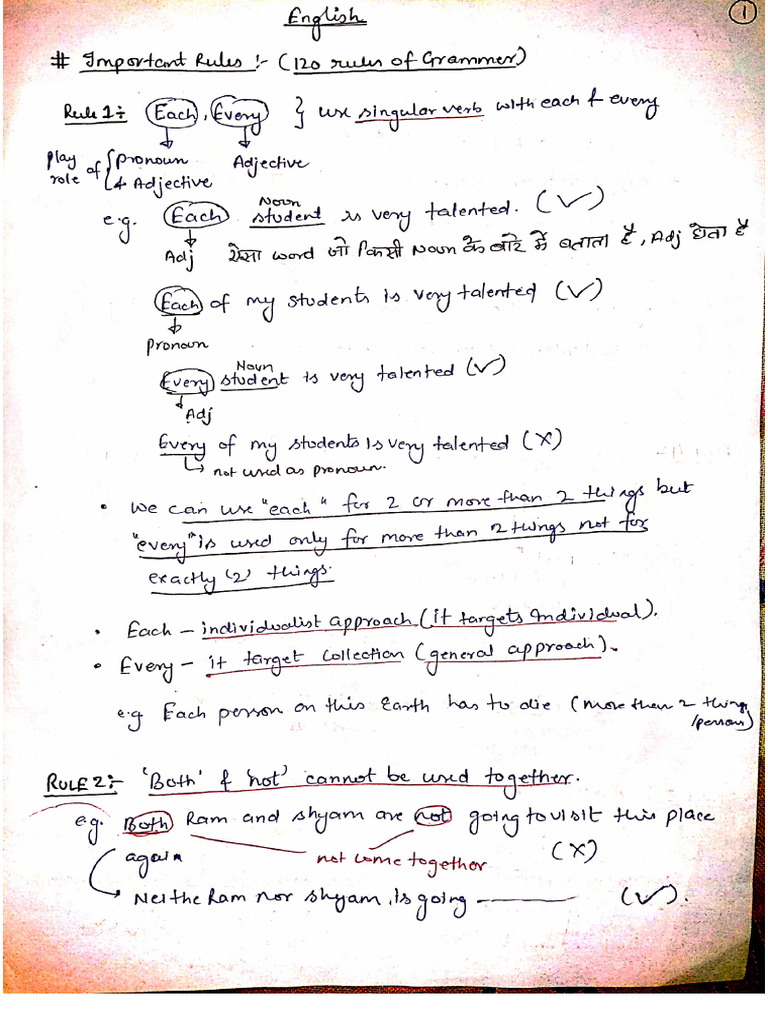 1
English
# Important Rules :- (120 rules of Grammer)
Rule 1:- Each, Every } use singular verb with each & every
Play role of { pronoun & Adjective
Adjective
Noun
e.g. Each student is very talented. (✓)
Adj ऐसा word जो किसी Noun के बारे में बताता है, Adj होता है
Each of my students is very talented (✓)
pronoun
Noun
Every student is very talented (✓)
Adj
Every of my students is very talented (X)
not used as pronoun.
• We can use "each" for 2 or more than 2 things but
"every" is used only for more than 2 things not for
exactly (2) things.
• Each – individualist approach (it targets individual).
• Every – it target collection (general approach).
e.g Each person on this Earth has to die (more than 2 things
/person)
RULE 2:- 'Both' & 'not' cannot be used together.
e.g. Both Ram and shyam are not going to visit this place
again (X)
not come together
Neithe Ram nor shyam is going ——— (✓).